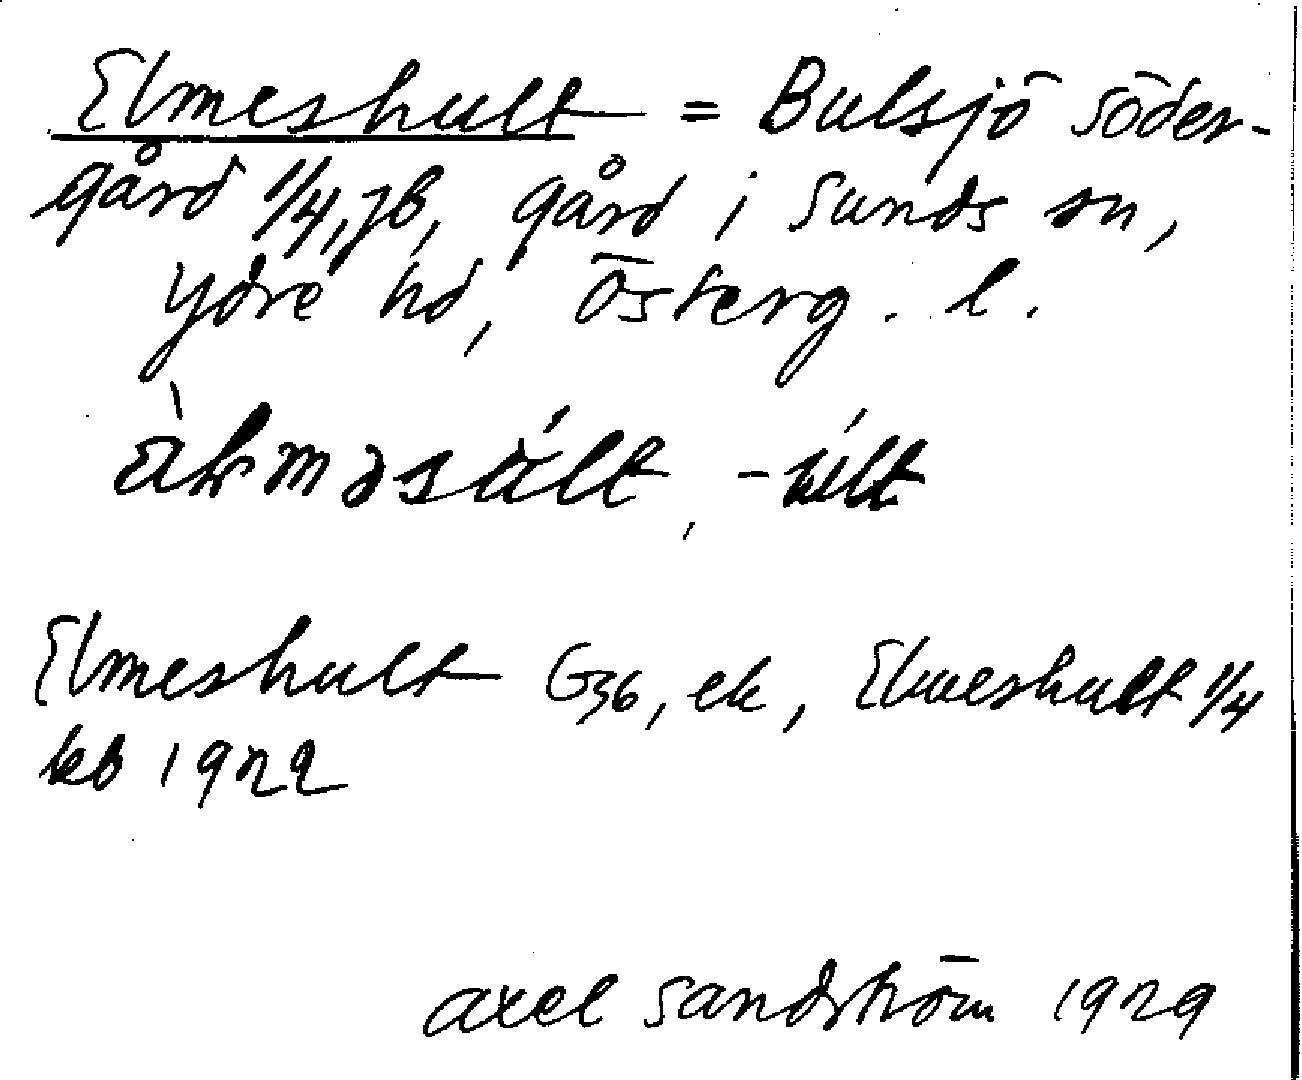 Elmeshult = Bulsjö Söder-
gård 1/4, jb, gård i Sunds sn,
Ydre hd, Österg. l.
Elmeshult G36, ek, Elmeshult 1/4
kb 1922
Axel Sandström 1929